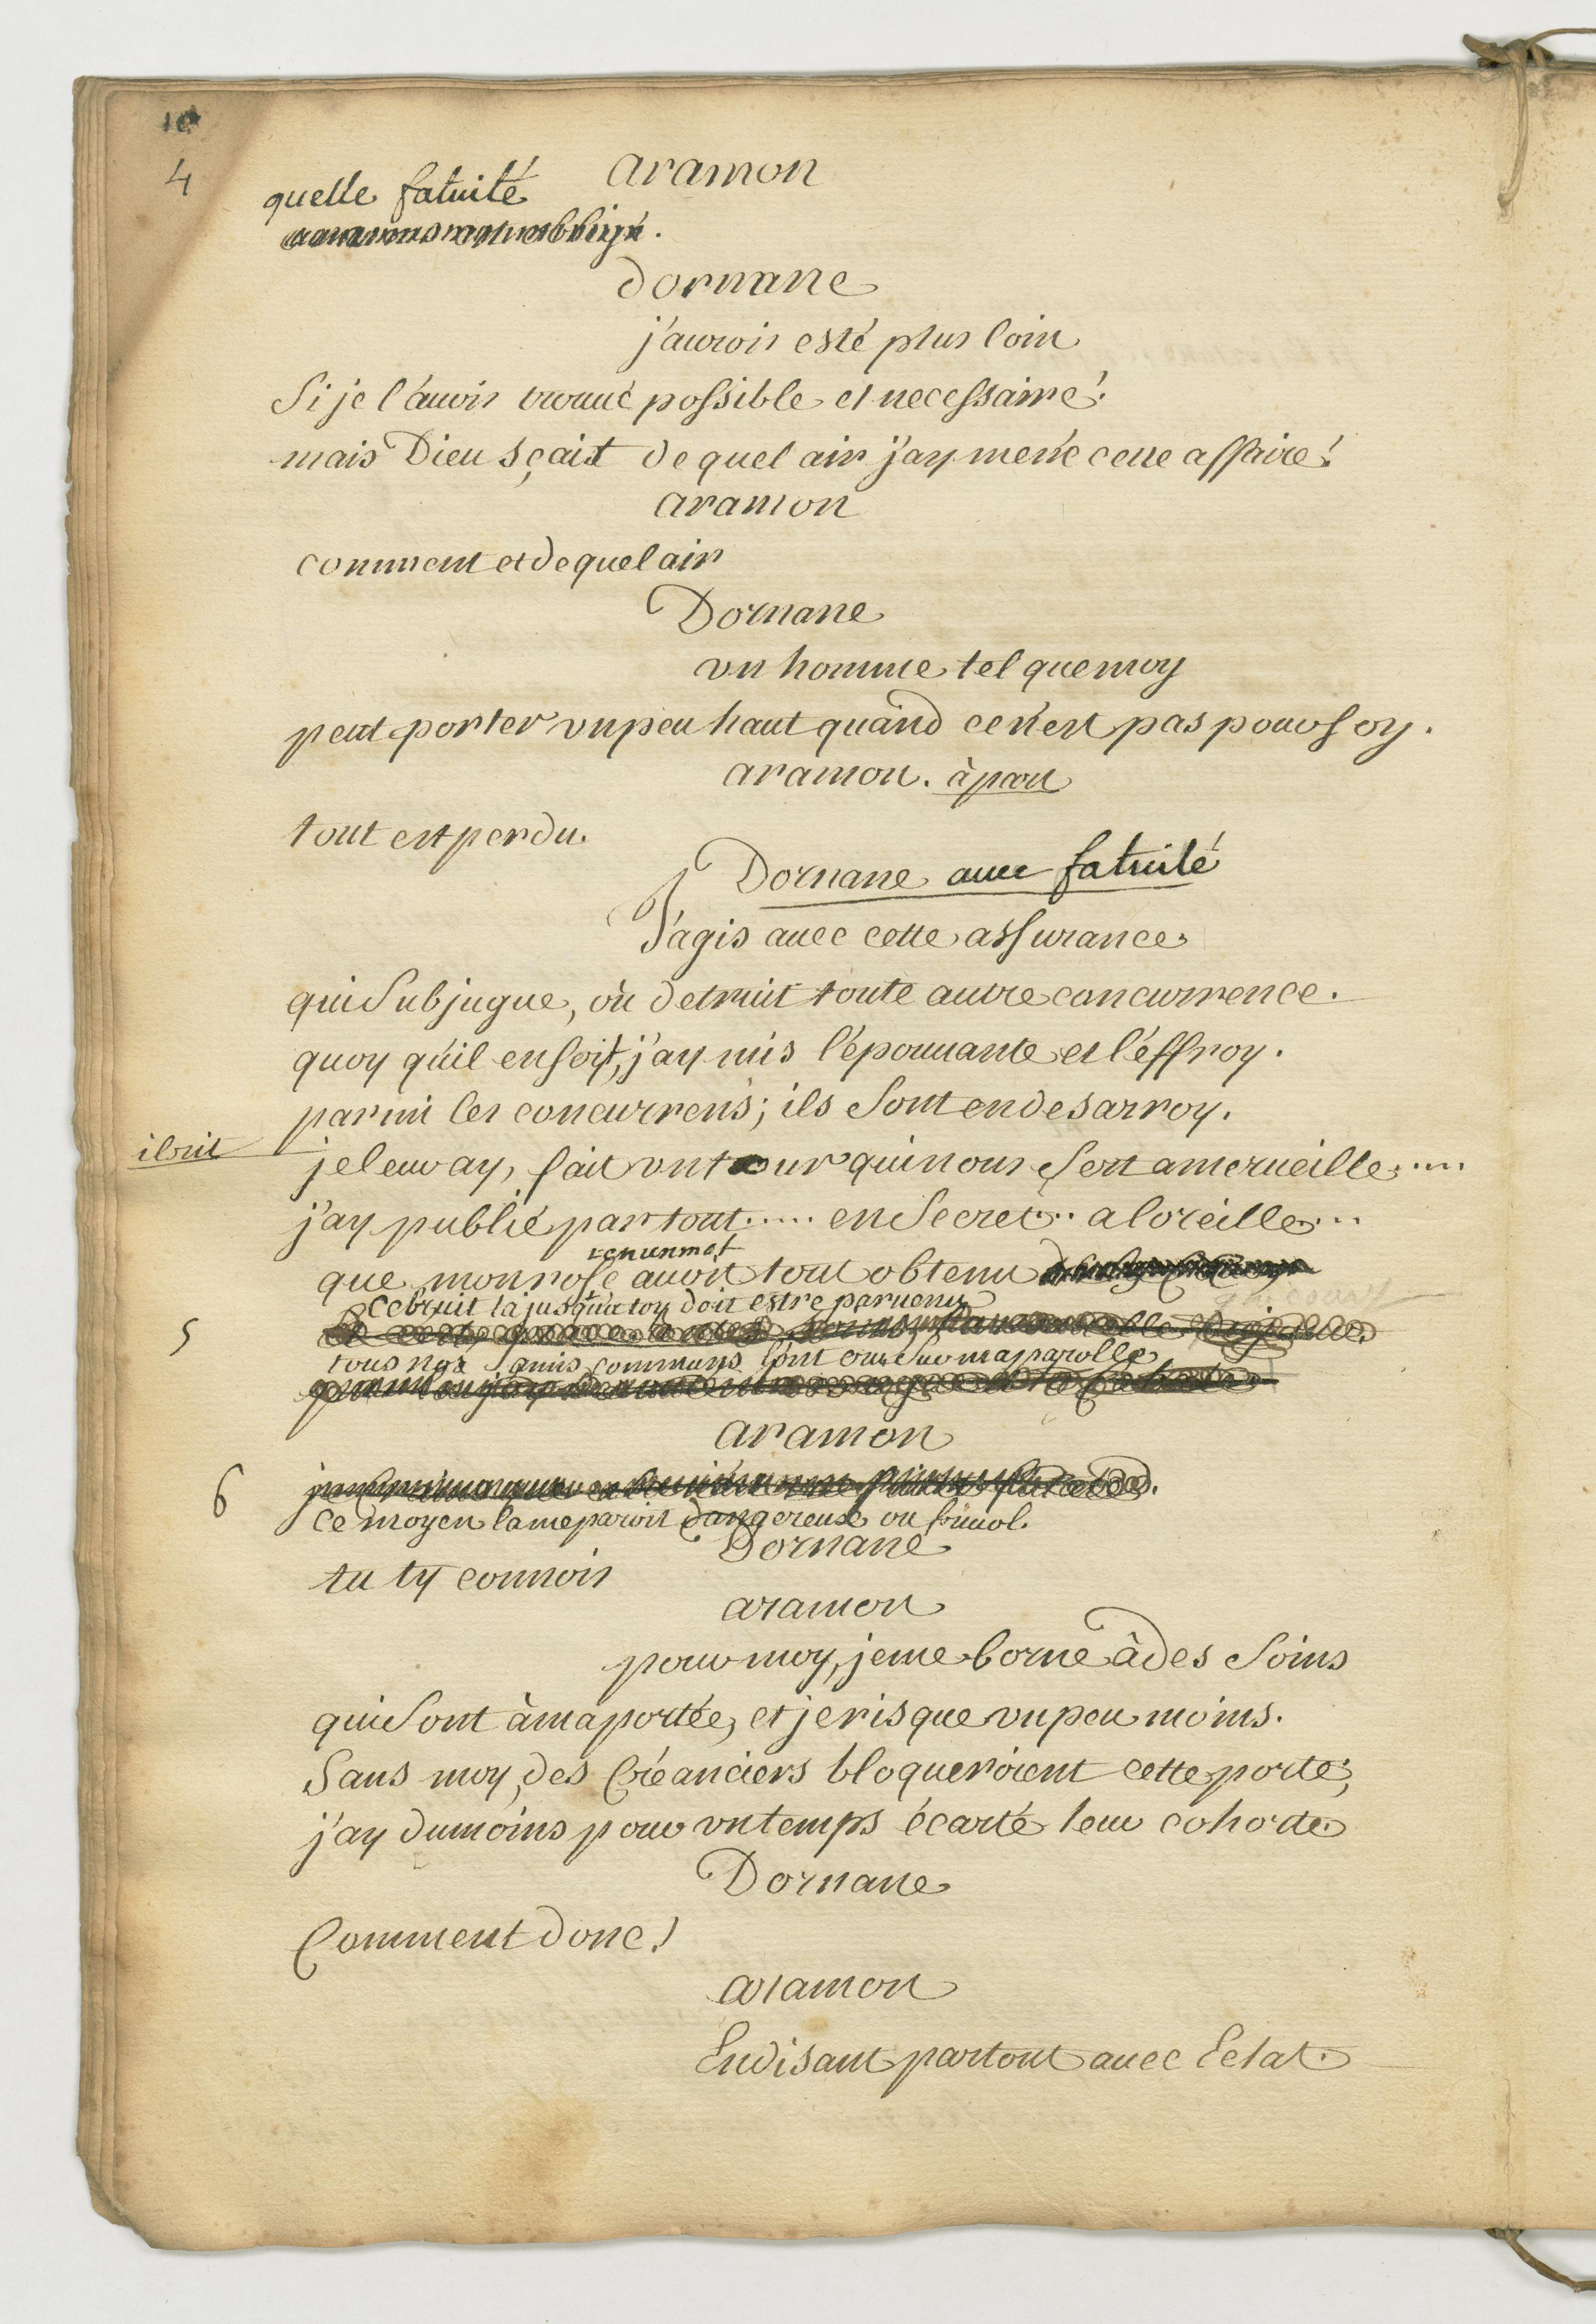 10
4
aramon
quelle fatuité
dornane
j'aurois esté plus loin
Si je l'auois trouué possible et necessaire!
mais Dieu sçait de quel air j'ay mené cette affaire!
aramon
comment et de quel air
Dornane
vn homme tel que moy
peut porter vn peu haut quand ce n'est pas pour soy.
aramon. à part
tout est perdu.
Dornane auec fatuité
J'agis auec cette assurance
qui Subjugue, où detruit toute autre concurrence.
quoy qu'il en soit, j'ay mis l'épouuante et l'éffroy.
parmi les concurrens; ils Sont en desarroy.
il rit
je leur ay, fait vn tour qui nous Sert a merueille.....
j'ay publié partout..... en Secret.. a l'oreille...
que monrose auoit tout obtenu
ce bruit la jusqu'a toy doit estre paruenu
5
tous nos amis communs l'ont cru Sur ma parolle
aramon
6
ce moyen la me paroit dangereux ou friuol.
Dornane
tu ty connois
aramon
pour moy, je me borne à des Soins
qui Sont à ma portée, et je risque vn peu moins.
Sans moy, des Créanciers bloqueroient cette porte,
j'ay du moins pour vn temps écarté leur cohorte
Dornane
Comment donc!
aramon
En disant partout auec Eclat.